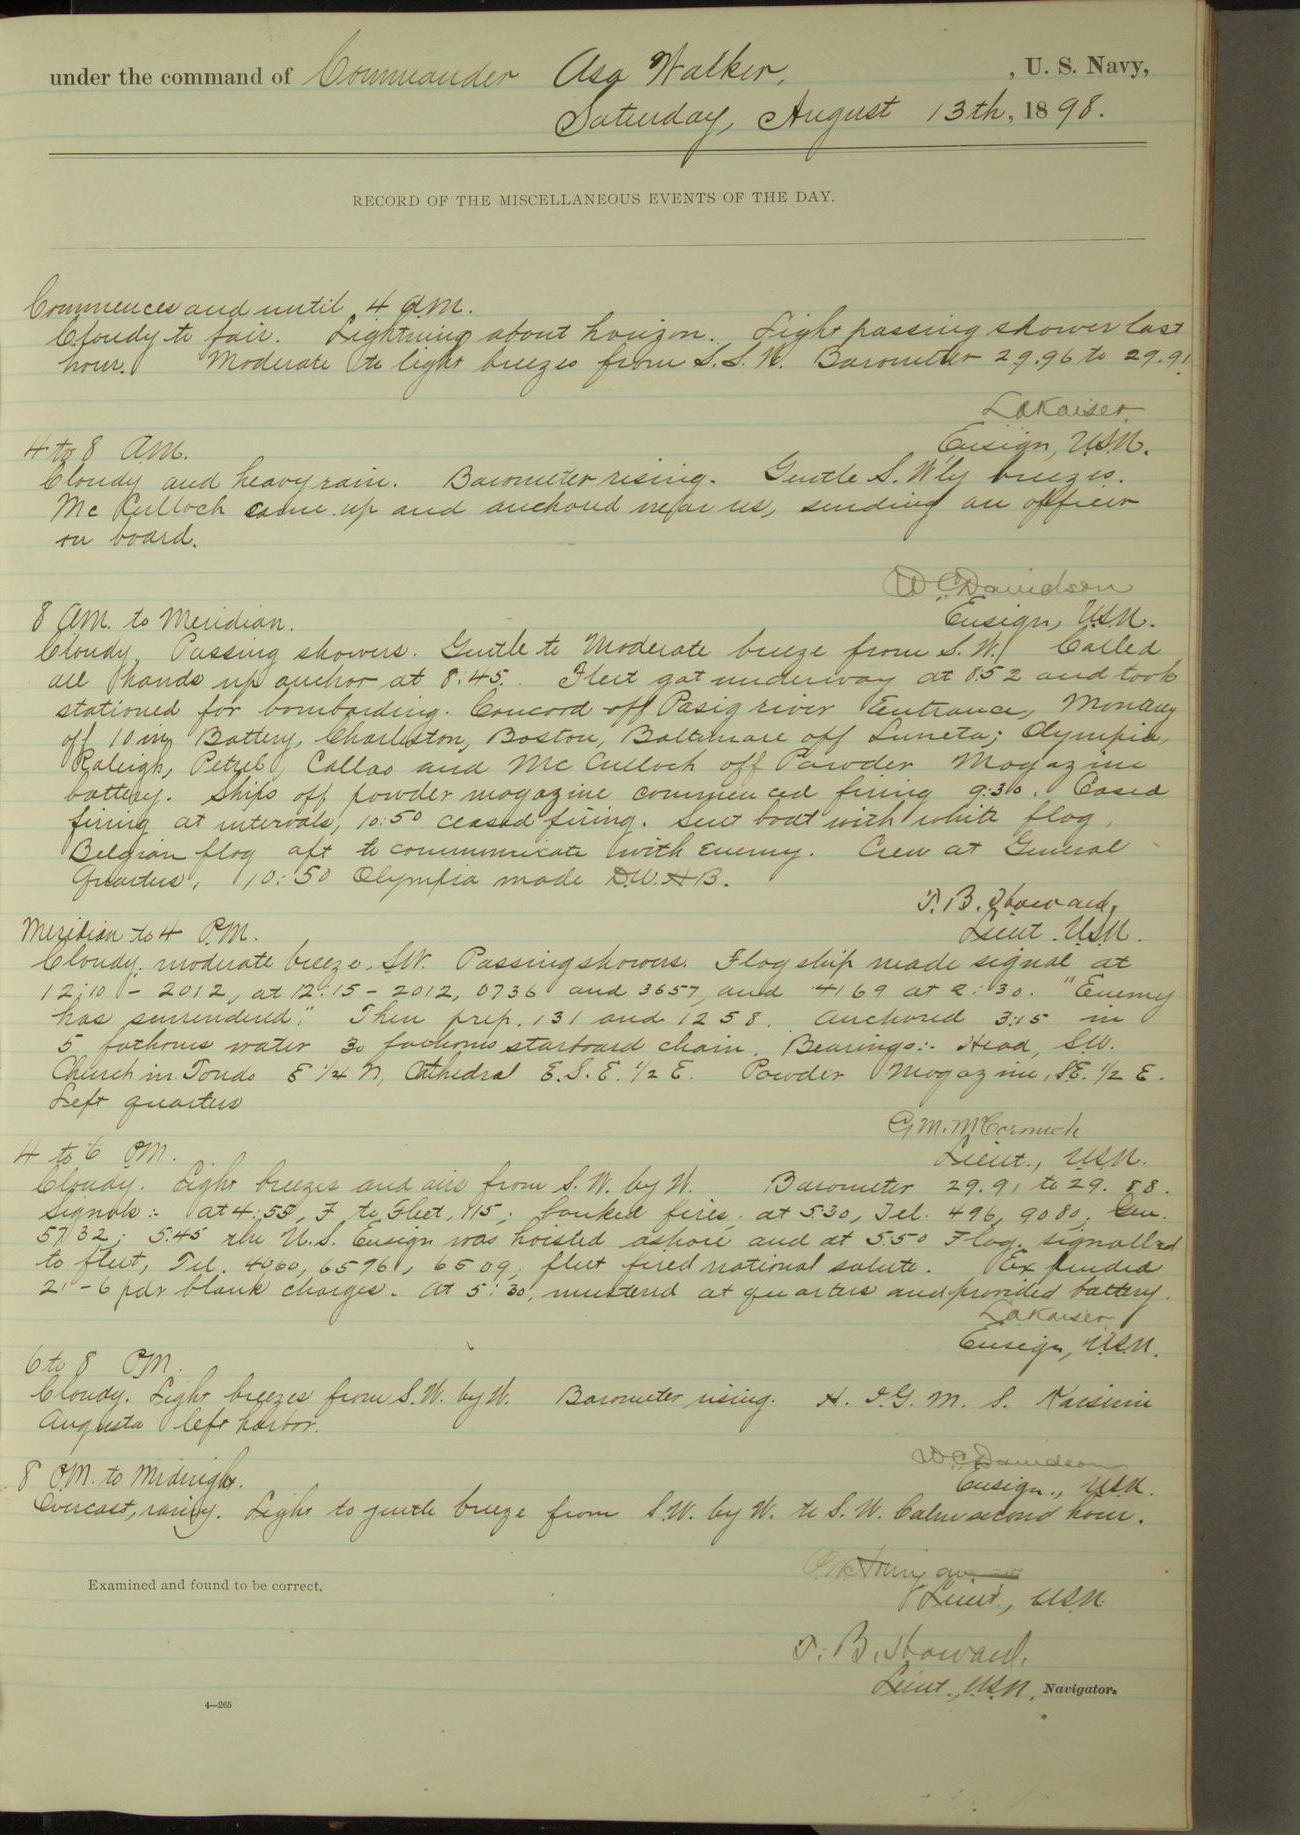 under the command of Commander Asa Walker, , U. S. Navy,
Saturday, August 13th, 1898.
RECORD OF THE MISCELLANEOUS EVENTS OF THE DAY.
Commences and until 4 AM.
Cloudy to fair. Lightning about horizon. Light passing shower last
hour. Moderate to light breezes from S.S.W. Barometer 29.96 to 29.91
LAKaiser
Ensign, U.S.N.
4 to 8 AM.
Cloudy and heavy rain. Barometer rising. Gentle S.W'ly breezes.
McCulloch came up and anchored near us, sending an officer
on board.
W C Davidson
Ensign, U.S.N.
8 AM. to Meridian.
Cloudy, Passing showers. Gentle to Moderate breeze from S.W. Called
all hands up anchor at 8:45. Fleet got underway at 8.52 and took
stationed for bombarding. Concord off Pasig river Entrance, Monterey
off 10 in Battery, Charleston, Boston, Baltimore off Luneta; Olympia,
Raleigh, Petrel, Callao and McCulloch off Powder Magazine
battery. Ships off powder magazine commenced firing 9:30. Ceased
firing at intervals, 10:50 ceased firing. Sent boat with white flag,
Belgian flag aft to communicate with Enemy. Crew at General
Quarters, 10:50 Olympia made D.W.H.B.
T. B. Howard,
Lieut. U.S.N.
Meridian to 4 P.M.
Cloudy, moderate breeze, SW. Passing showers. Flagship made signal at
12:10 - 2012, at 12:15 - 2012, 0736 and 3657, and 4169 at 2:30. "Enemy
has surrendered." Then prep. 131 and 1258. Anchored 3:15 in
5 fathoms water 30 fathoms starboard chain. Bearings:- Head, S.W.
Church in Tondo E 1/4 N, Cathedral E.S.E. 1/2 E. Powder Magazine, S.E. 1/2 E.
Left quarters
G.M. McCormick
Lieut., U.S.N.
4 to 6 P.M.
Cloudy. Light breezes and airs from S.W. by W. Barometer 29.91 to 29.88.
Signals:- at 4:55, F to Fleet, 115; banked fires, at 5.30, Tel. 496, 9080; Gen.
5732; 5:45 the U.S. Ensign was hoisted ashore and at 5.50 Flag. signalled
to fleet, Tel. 4060, 6576, 6509, fleet fired national salute. Expended
21-6 pdr blank charges. At 5:30, mustered at quarters and provided battery.
LAKaiser
Ensign, U.S.N.
6 to 8 P.M.
Cloudy. Light breezes from S.W. by W. Barometer rising. H. I. G. M. S. Kaiserin
Augusta left harbor.
W.C. Davidson
Ensign., U.S.N.
8 P.M. to Midnight.
Overcast, rainy. Light to gentle breeze from S.W. by W. to S.W. Calm second hour.
Lieut., U.S.N.
Examined and found to be correct.
T. B. Howard,
Lieut., U.S.N., Navigator.
4—265